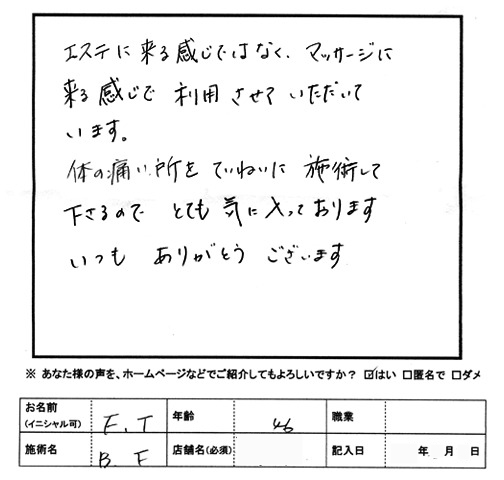 エステに来る感じではなく、マッサージに
来る感じで 利用 させて いただいて
います。
体の痛い所を ていねいに 施術して
下さるので とても 気に入っております
いつも ありがとう ございます
※ あなた様の声を、ホームページなどでご紹介してもよろしいですか？ ☑はい □匿名で □ダメ
お名前 (イニシャル可) F. T 年齢 46 職業
施術名 B. F 店舗名(必須) 記入日 年 月 日